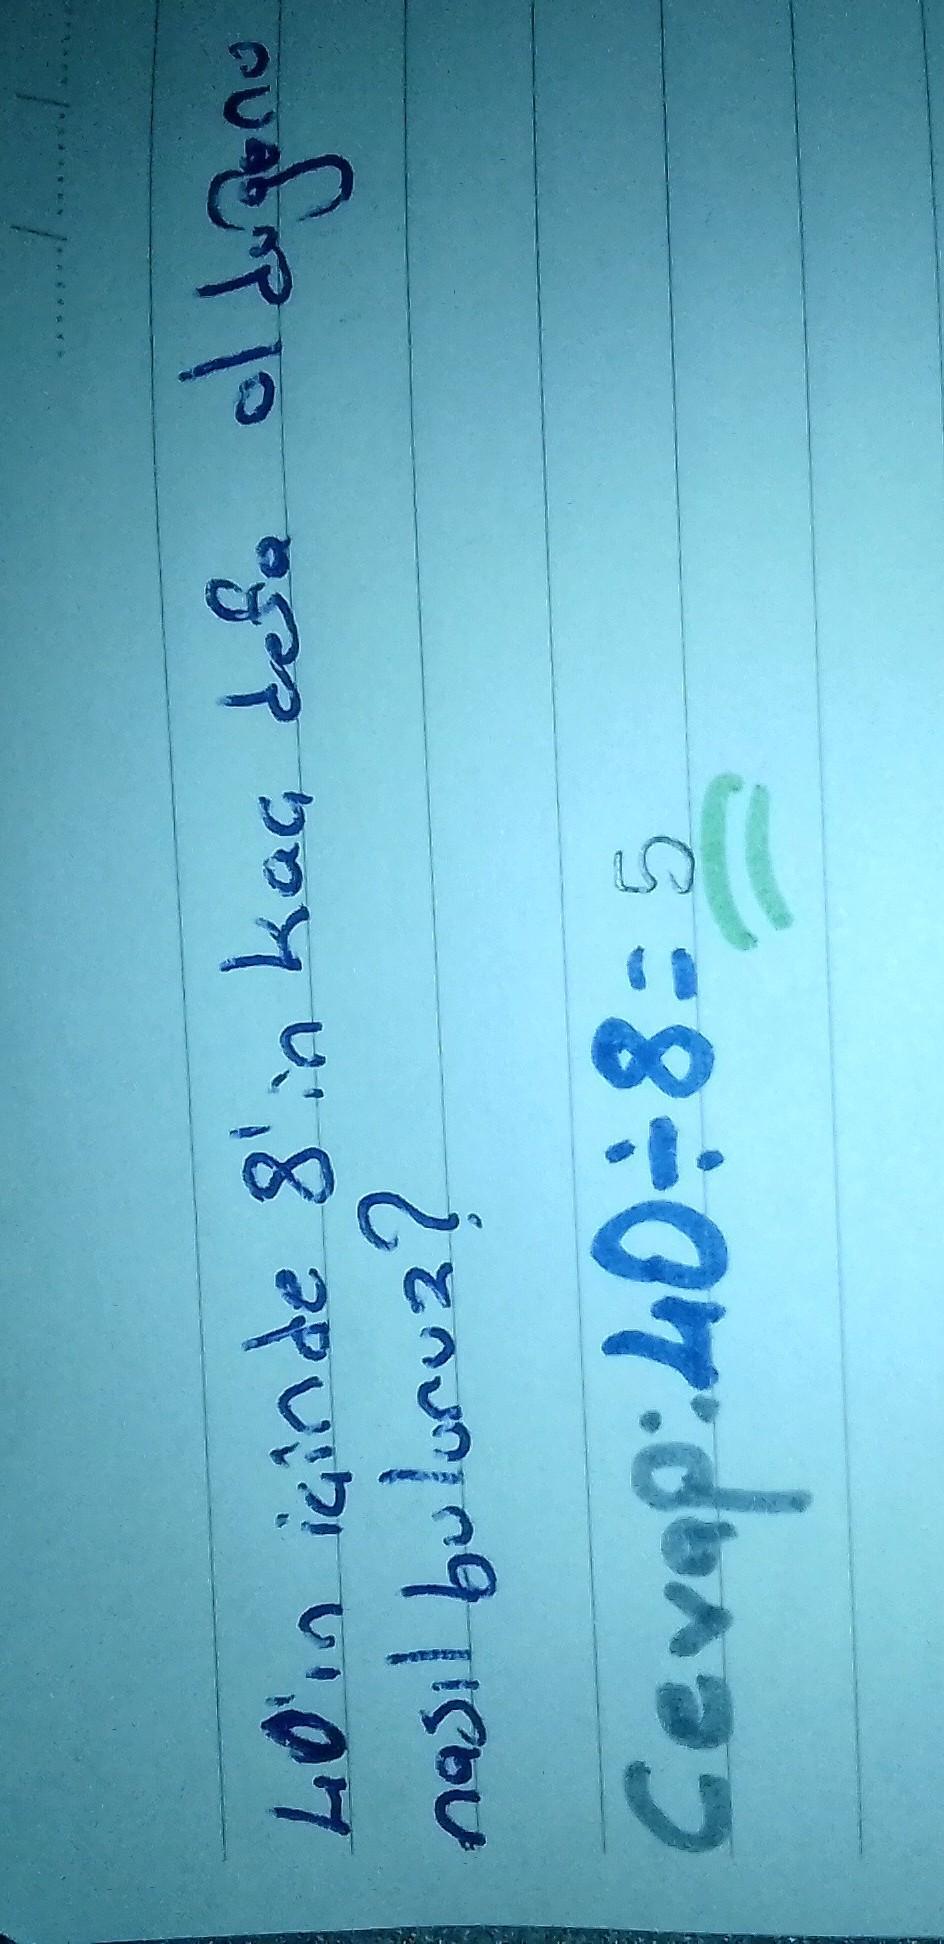 40'ın içinde 8'in kaç defa olduğunu
nasıl buluruz?
Cevap: 40÷8=5